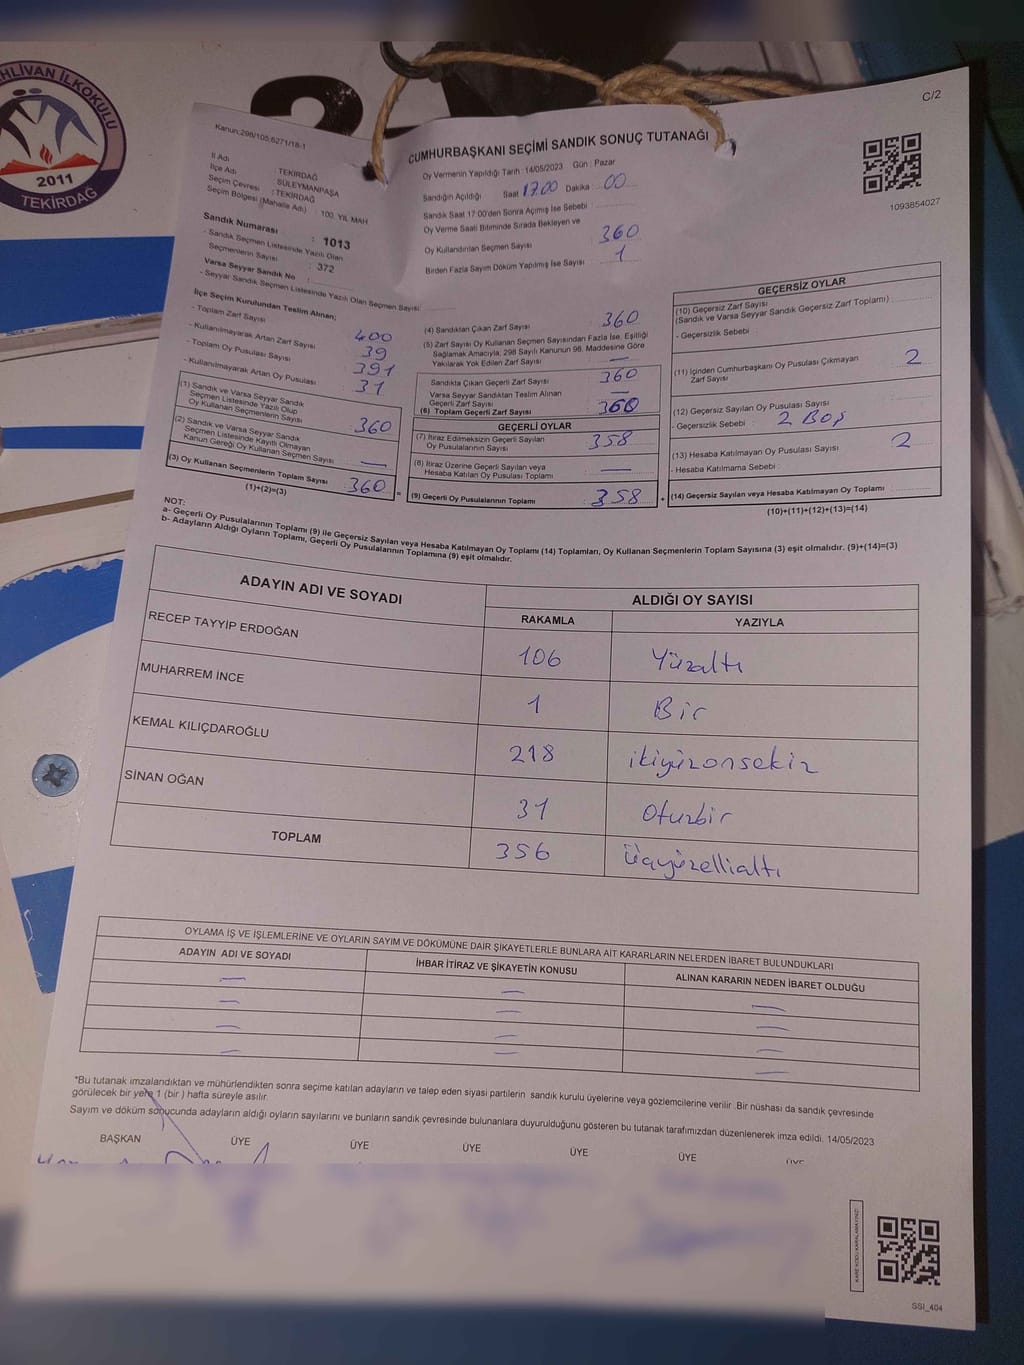 EHLİVAN İLKOKULU
2011
TEKİRDAĞ
C/2
Kanun:298/105,6271/18-1
CUMHURBAŞKANI SEÇİMİ SANDIK SONUÇ TUTANAĞI
1093854027
İl Adı : TEKİRDAĞ
İlçe Adı : SÜLEYMANPAŞA
Seçim Çevresi : TEKİRDAĞ
Seçim Bölgesi (Mahalle Adı) : 100. YIL MAH
Sandık Numarası : 1013
- Sandık Seçmen Listesinde Yazılı Olan
Seçmenlerin Sayısı : 372
Varsa Seyyar Sandık No :
- Seyyar Sandık Seçmen Listesinde Yazılı Olan Seçmen Sayısı
Oy Vermenin Yapıldığı Tarih :14/05/2023 Gün : Pazar
Sandığın Açıldığı Saat 17.00 Dakika 00
Sandık Saat 17:00'den Sonra Açımış İse Sebebi :
Oy Verme Saati Bitiminde Sırada Bekleyen ve
Oy Kullandırılan Seçmen Sayısı 360
Birden Fazla Sayım Döküm Yapılmış İse Sayısı 1
İlçe Seçim Kurulundan Teslim Alınan;
- Toplam Zarf Sayısı : 400
- Kullanılmayarak Artan Zarf Sayısı : 39
- Toplam Oy Pusulası Sayısı : 391
- Kullanılmayarak Artan Oy Pusulası : 31
(1) Sandık ve Varsa Seyyar Sandık
Seçmen Listesinde Yazılı Olup
Oy Kullanan Seçmenlerin Sayısı : 360
(2) Sandık ve Varsa Seyyar Sandık
Seçmen Listesinde Kayıtlı Olmayan
Kanun Gereği Oy Kullanan Seçmen Sayısı : —
(3) Oy Kullanan Seçmenlerin Toplam Sayısı : 360 =
(1)+(2)=(3)
(4) Sandıktan Çıkan Zarf Sayısı : 360
(5) Zarf Sayısı Oy Kullanan Seçmen Sayısından Fazla İse, Eşitliği
Sağlamak Amacıyla, 298 Sayılı Kanunun 98. Maddesine Göre
Yakılarak Yok Edilen Zarf Sayısı : —
Sandıkta Çıkan Geçerli Zarf Sayısı : 360
Varsa Seyyar Sandıktan Teslim Alınan
Geçerli Zarf Sayısı : —
(6) Toplam Geçerli Zarf Sayısı : 360
GEÇERLİ OYLAR
(7) İtiraz Edilmeksizin Geçerli Sayılan
Oy Pusulalarının Sayısı : 358
(8) İtiraz Üzerine Geçerli Sayılan veya
Hesaba Katılan Oy Pusulası Toplamı : —
(9) Geçerli Oy Pusulalarının Toplamı : 358 +
GEÇERSİZ OYLAR
(10) Geçersiz Zarf Sayısı
(Sandık ve Varsa Seyyar Sandık Geçersiz Zarf Toplamı) :
- Geçersizlik Sebebi :
(11) İçinden Cumhurbaşkanı Oy Pusulası Çıkmayan
Zarf Sayısı : 2
(12) Geçersiz Sayılan Oy Pusulası Sayısı
- Geçersizlik Sebebi : 2 Boş
(13) Hesaba Katılmayan Oy Pusulası Sayısı : 2
- Hesaba Katılmama Sebebi :
(14) Geçersiz Sayılan veya Hesaba Katılmayan Oy Toplamı :
(10)+(11)+(12)+(13)=(14)
NOT:
a- Geçerli Oy Pusulalarının Toplamı (9) ile Geçersiz Sayılan veya Hesaba Katılmayan Oy Toplamı (14) Toplamları, Oy Kullanan Seçmenlerin Toplam Sayısına (3) eşit olmalıdır. (9)+(14)=(3)
b- Adayların Aldığı Oyların Toplamı, Geçerli Oy Pusulalarının Toplamına (9) eşit olmalıdır.
ADAYIN ADI VE SOYADI ALDIĞI OY SAYISI
RAKAMLA YAZIYLA
RECEP TAYYİP ERDOĞAN 106 Yüzaltı
MUHARREM İNCE 1 Bir
KEMAL KILIÇDAROĞLU 218 ikiyüzonsekiz
SİNAN OĞAN 31 Otuzbir
TOPLAM 356 Üçyüzelialtı
OYLAMA İŞ VE İŞLEMLERİNE VE OYLARIN SAYIM VE DÖKÜMÜNE DAİR ŞİKAYETLERLE BUNLARA AİT KARARLARIN NELERDEN İBARET BULUNDUKLARI
ADAYIN ADI VE SOYADI İHBAR İTİRAZ VE ŞİKAYETİN KONUSU ALINAN KARARIN NEDEN İBARET OLDUĞU
— — —
— — —
— — —
— — —
*Bu tutanak imzalandıktan ve mühürlendikten sonra seçime katılan adayların ve talep eden siyasi partilerin sandık kurulu üyelerine veya gözlemcilerine verilir .Bir nüshası da sandık çevresinde
görülecek bir yere 1 (bir ) hafta süreyle asılır.
Sayım ve döküm sonucunda adayların aldığı oyların sayılarını ve bunların sandık çevresinde bulunanlara duyurulduğunu gösteren bu tutanak tarafımızdan düzenlenerek imza edildi. 14/05/2023
BAŞKAN ÜYE ÜYE ÜYE ÜYE ÜYE ÜYE
KARE KODU KARALAMAYINIZ!
SSI_404